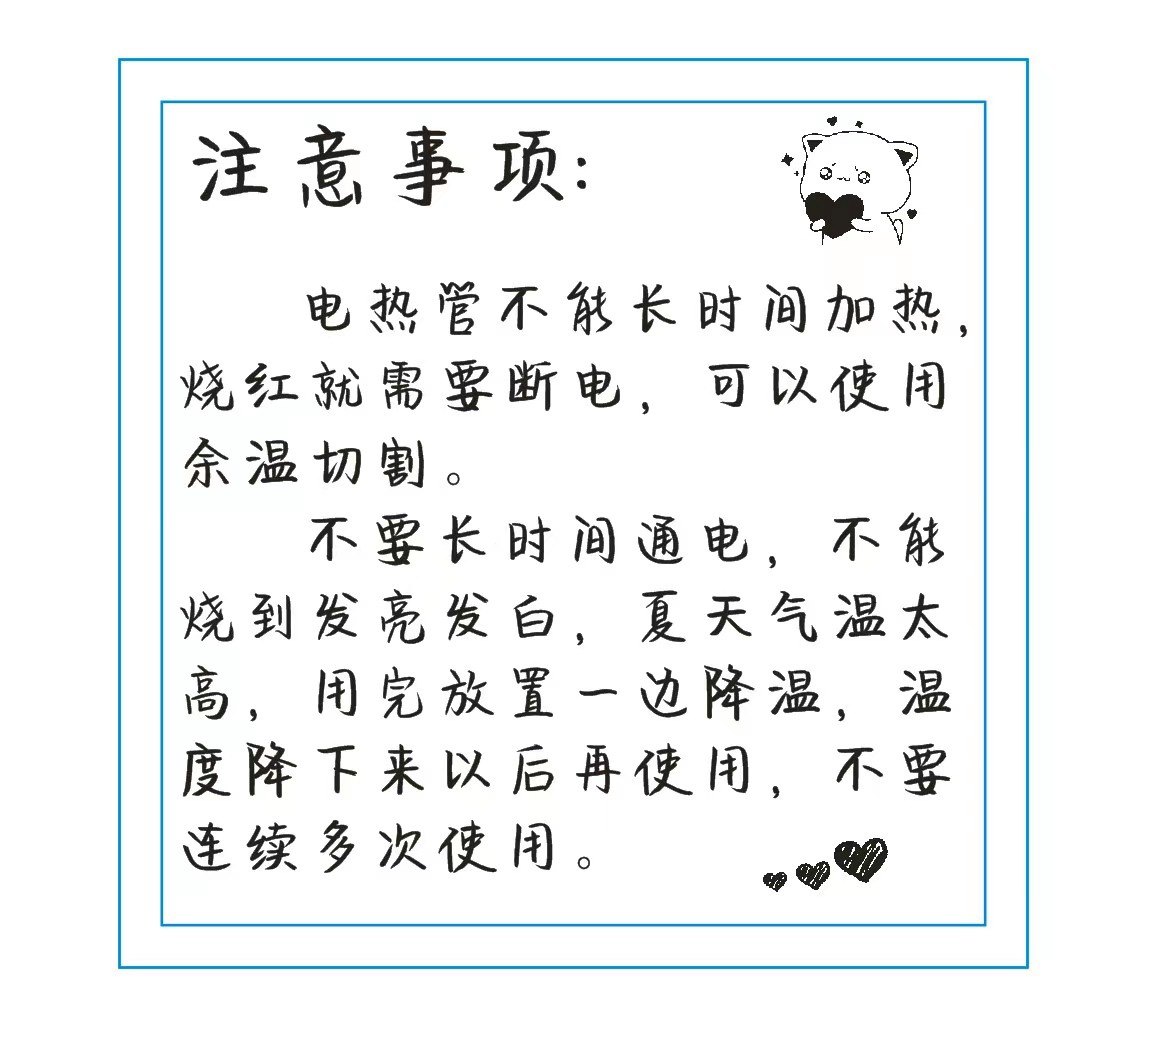 注意事项:
电热管不能长时间加热,
烧红就需要断电, 可以使用
余温切割。
不要长时间通电, 不能
烧到发亮发白, 夏天气温太
高, 用完放置一边降温, 温
度降下来以后再使用, 不要
连续多次使用。